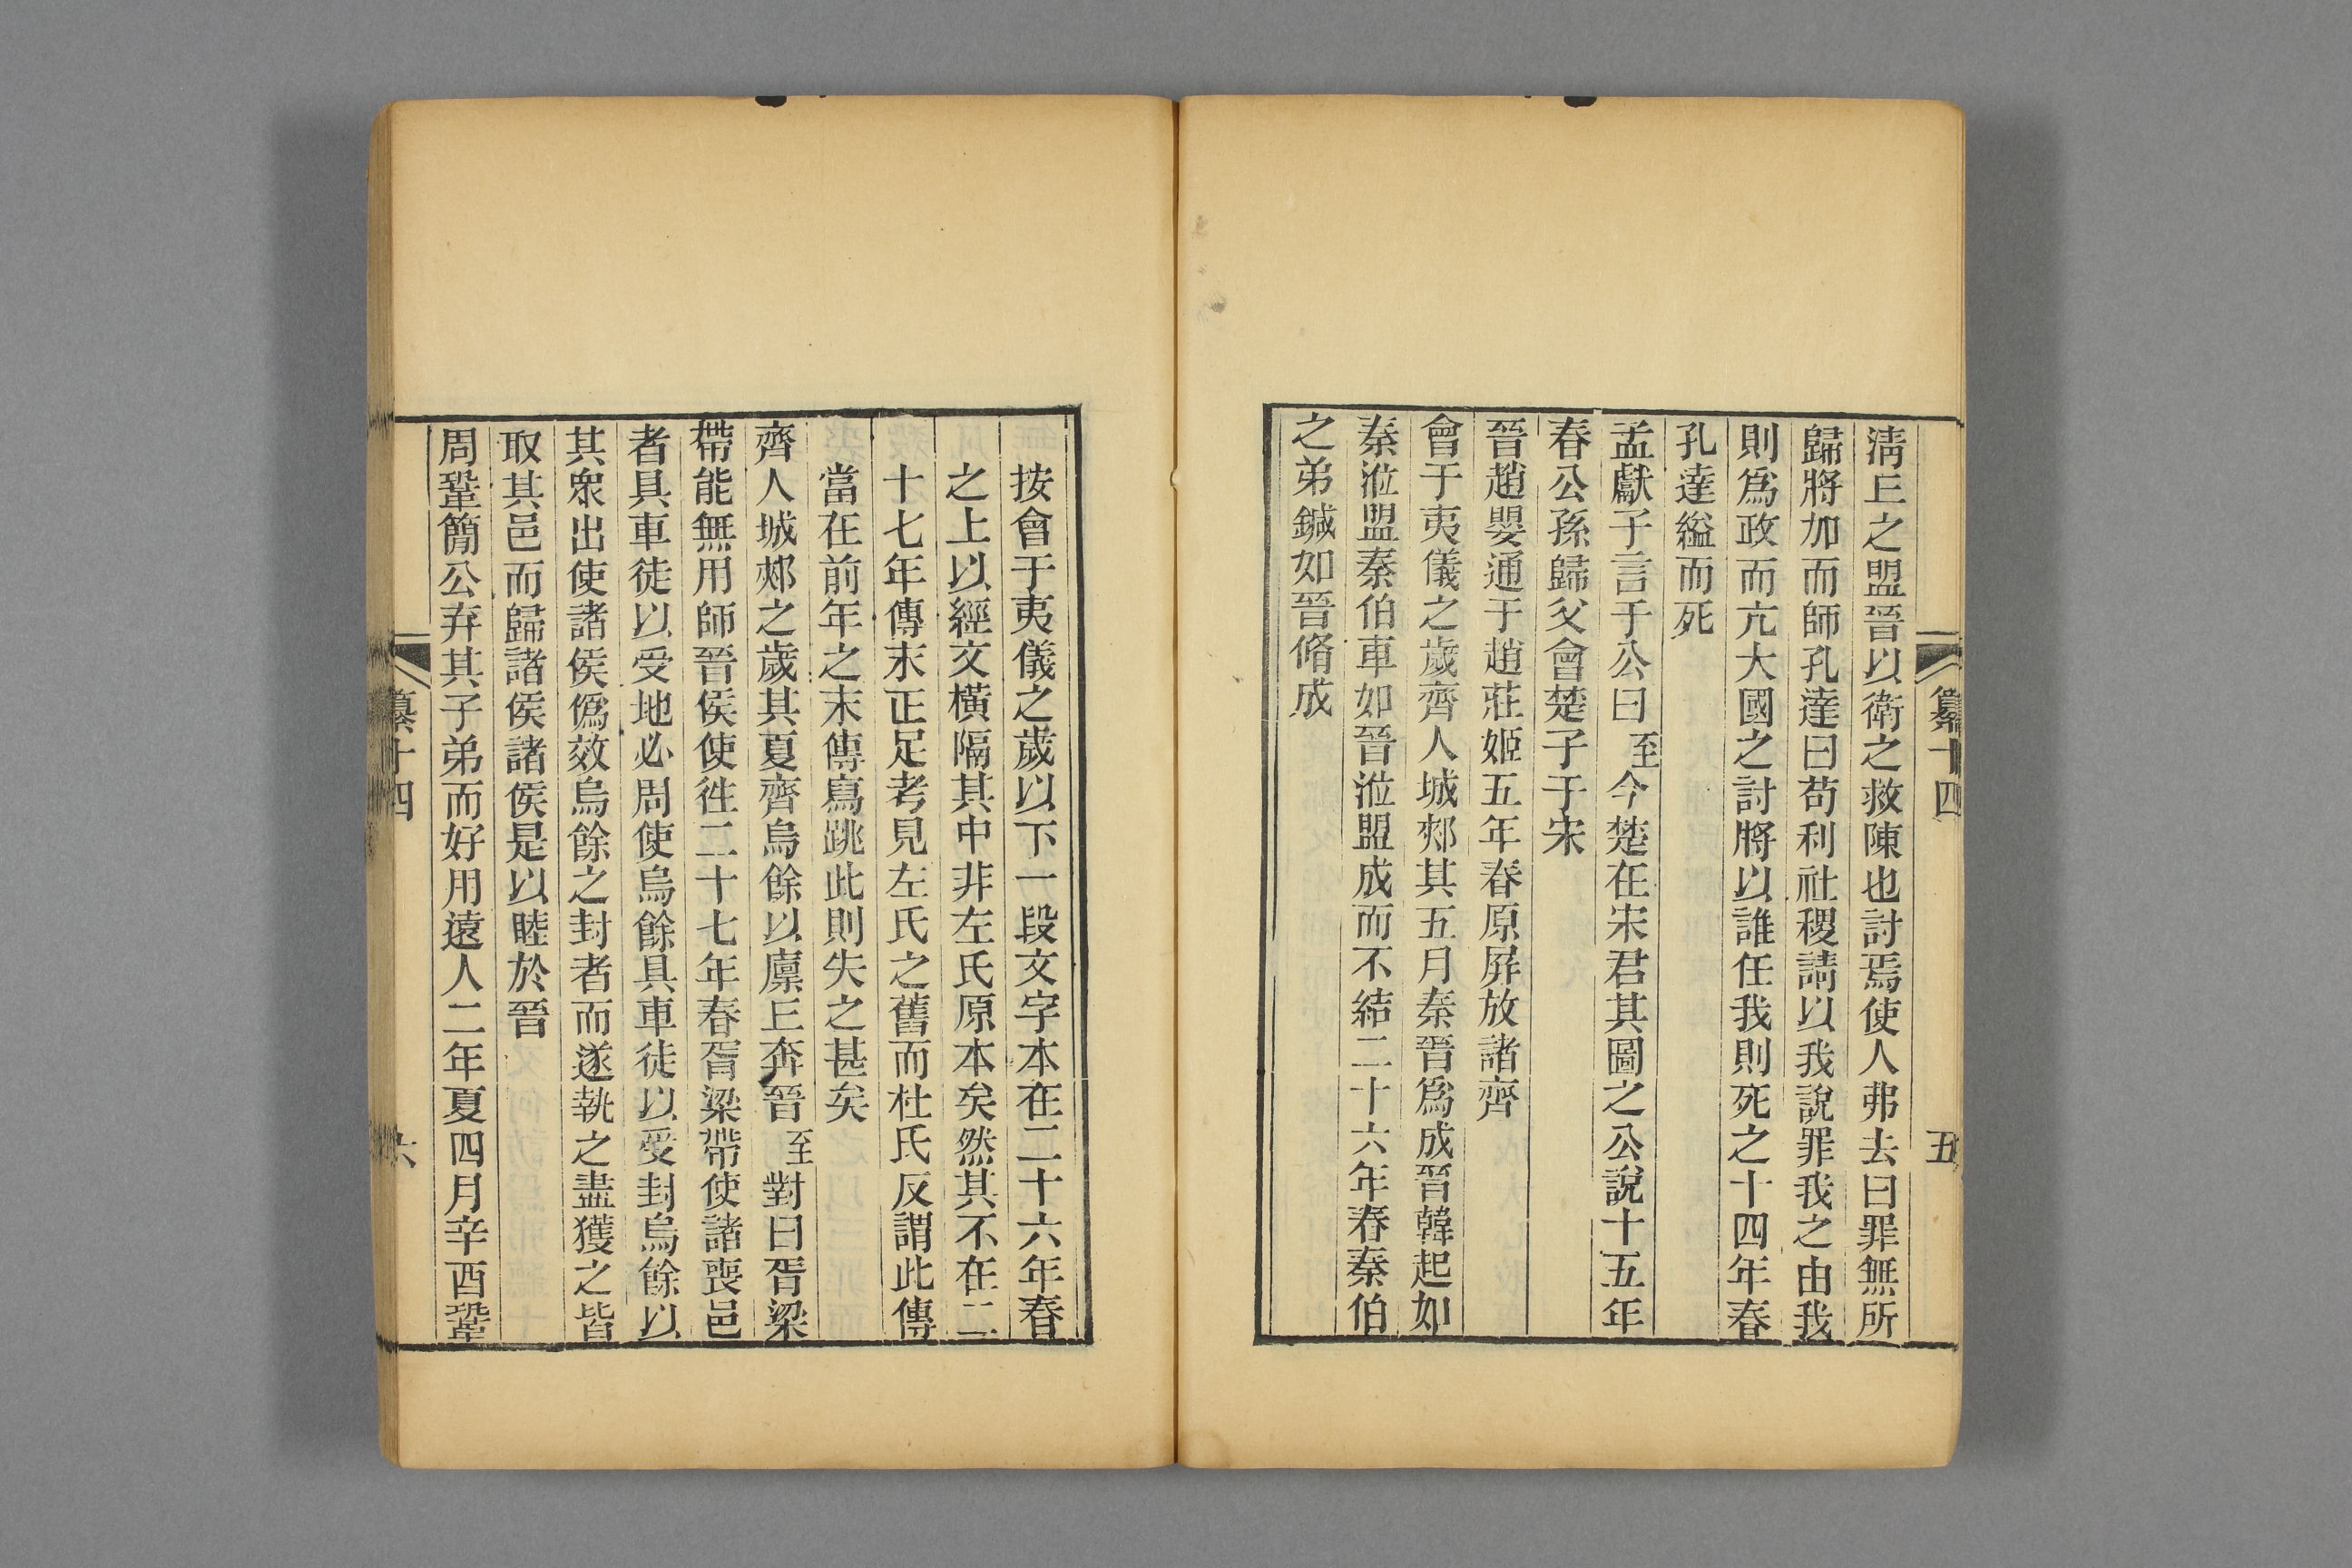 纂十四
五
淸丘之盟晉以衛之救陳也討焉使人弗去曰罪無所
歸將加而師孔達曰苟利社稷請以我說罪我之由我
則爲政而亢大國之討將以誰任我則死之十四年春
孔達縊而死
孟獻子言于公曰至今楚在宋君其圖之公說十五年
春公孫歸父會楚子于宋
晉趙嬰通于趙莊姬五年春原屛放諸齊
會于夷儀之歲齊人城郟其五月秦晉爲成晉韓起如
秦涖盟秦伯車如晉涖盟成而不結二十六年春秦伯
之弟鍼如晉脩成
按會于夷儀之歲以下一段文字本在二十六年春
之上以經文橫隔其中非左氏原本矣然其不在二
十七年傳末正足考見左氏之舊而杜氏反謂此傳
當在前年之末傳寫跳此則失之甚矣
齊人城郟之歲其夏齊烏餘以廩丘奔晉至對曰胥梁
帶能無用師晉侯使徃二十七年春胥梁帶使諸喪邑
者具車徒以受地必周使烏餘具車徒以受封烏餘以
其衆出使諸侯僞效烏餘之封者而遂執之盡獲之皆
取其邑而歸諸侯諸侯是以睦於晉
周鞏簡公弃其子弟而好用遠人二年夏四月辛酉鞏
纂十四
六